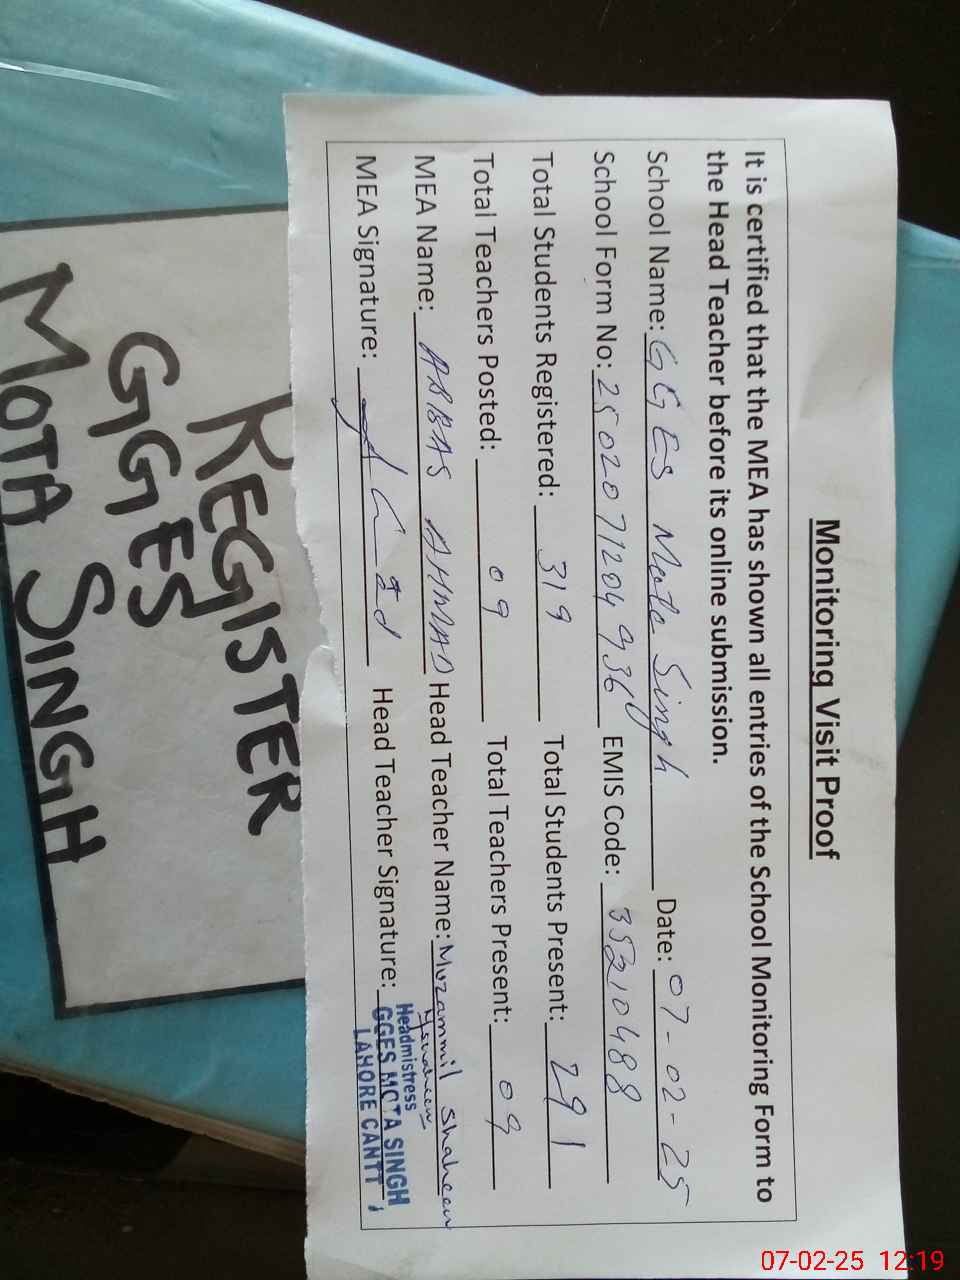 Monitoring Visit Proof
It is certified that the MEA has shown all entries of the School Monitoring Form to
the Head Teacher before its online submission.
School Name: GGES Mota Singh Date: 07-02-25
School Form No: 2502071204936 EMIS Code: 35210488
Total Students Registered: 319 Total Students Present: 291
Total Teachers Posted: 09 Total Teachers Present: 09
MEA Name: ABBAS AHMAD Head Teacher Name: Muzammil Shaheen
MEA Signature: Head Teacher Signature:
Headmistress
GGES MOTA SINGH
LAHORE CANTT
REGISTER
GGES
MOTA SINGH
07-02-25 12:19